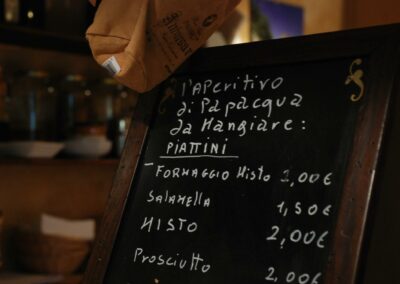 l'APeritivo
di Papacqua
da Mangiare:
PIATTINI
- FORMAGGIO Misto 2,00€
SALAMELLA 1,50€
MISTO 2,00€
Prosciutto 2,00€